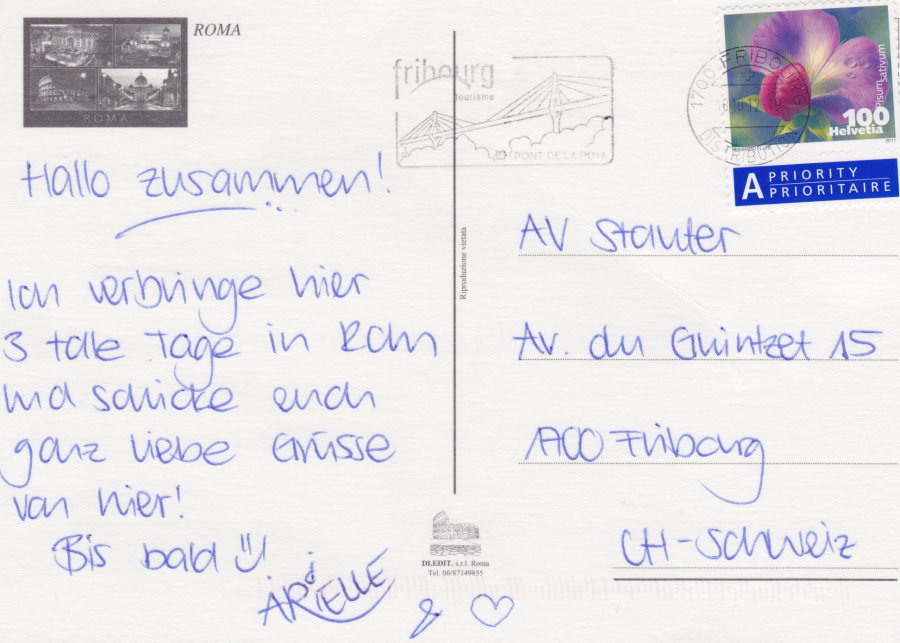 ROMA
ROMA
fribourg
tourisme
PONT DE LA POYA
1700 FRIBOURG
DISTRIBUTION
Pisum sativum
100
Helvetia
2011
A PRIORITY
PRIORITAIRE
Hallo zusammen!
Ich verbringe hier
3 tolle Tage in Rom
und schicke euch
ganz liebe Grüsse
von hier!
Bis bald
ARIELLE
&
Riproduzione vietata
AV Stauter
Av. du Guintzet 15
1700 Fribourg
CH-Schweiz
DI.EDIT. s.r.l. Roma
Tel. 06/87149855